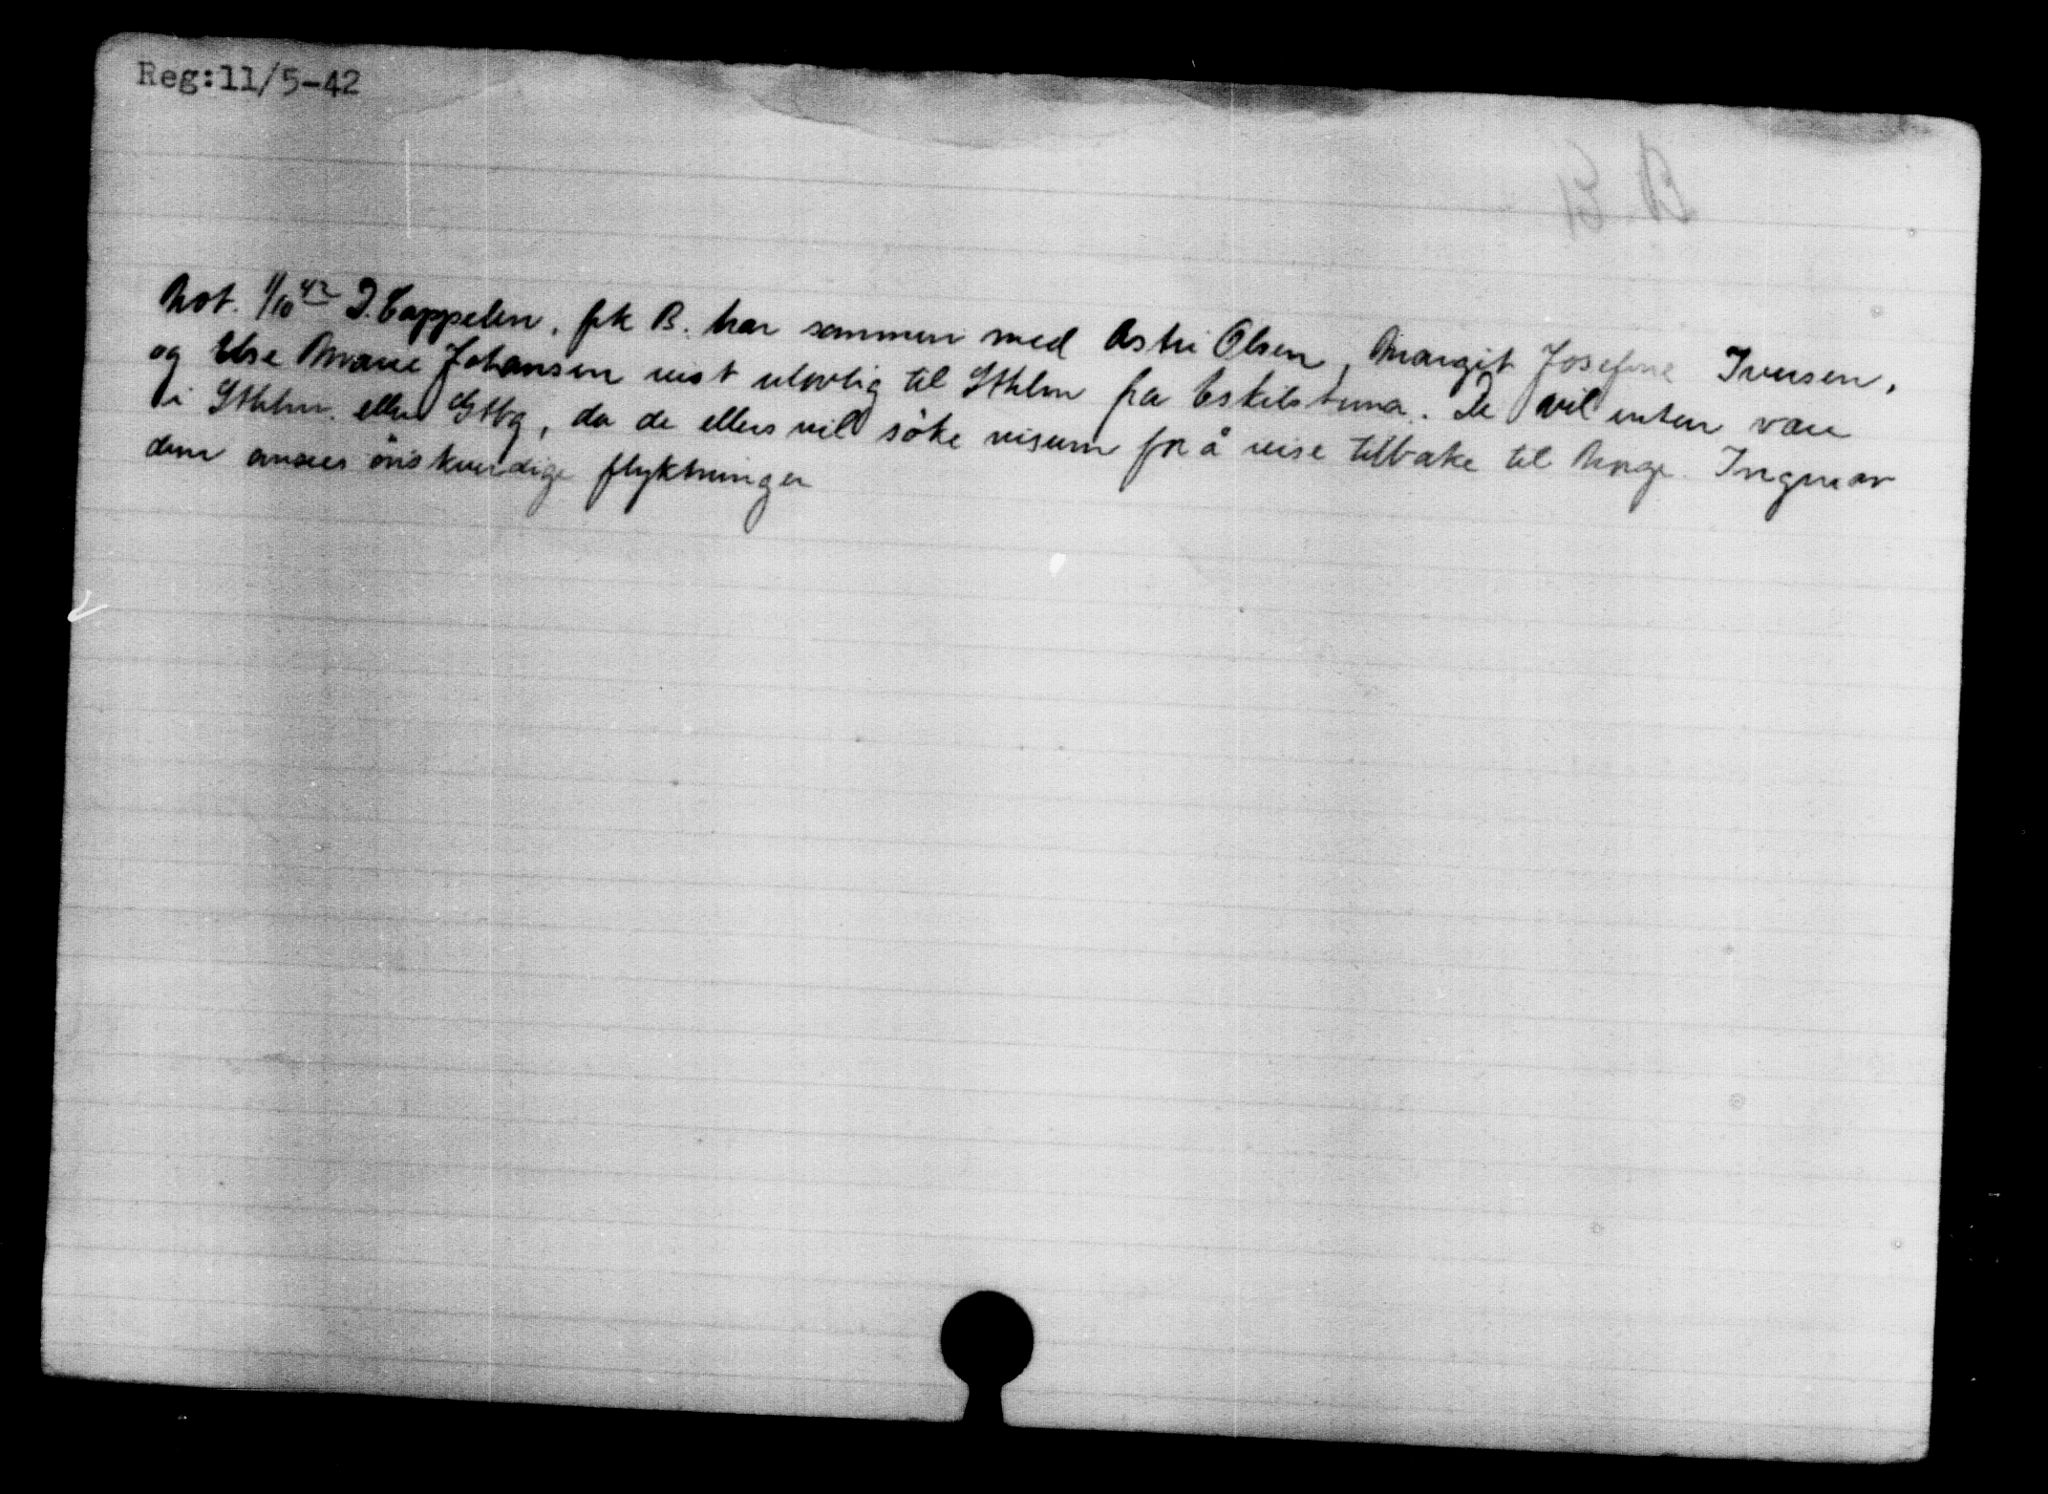 Reg:11/5-42
Not. 1/10 42 D. Cappelen, frk B. har sammen med Astri Olsen, Margit Josefine Iversen,
og Else Marie Johansen reist ulovlig til Sthlm fra Eskilstuna. De vil enten være
i Sthlm. eller Gtbg, da de ellers vil söke visum for å reise tilbake til Norge. Ingen av
dem ansees önskverdige flyktninger